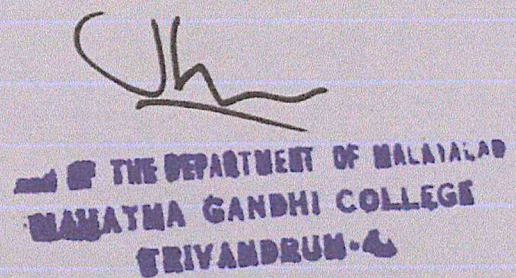 OF THE DEPARTMENT OF MALAYALAM
MAHATMA GANDHI COLLEGE
TRIVANDRUM-4